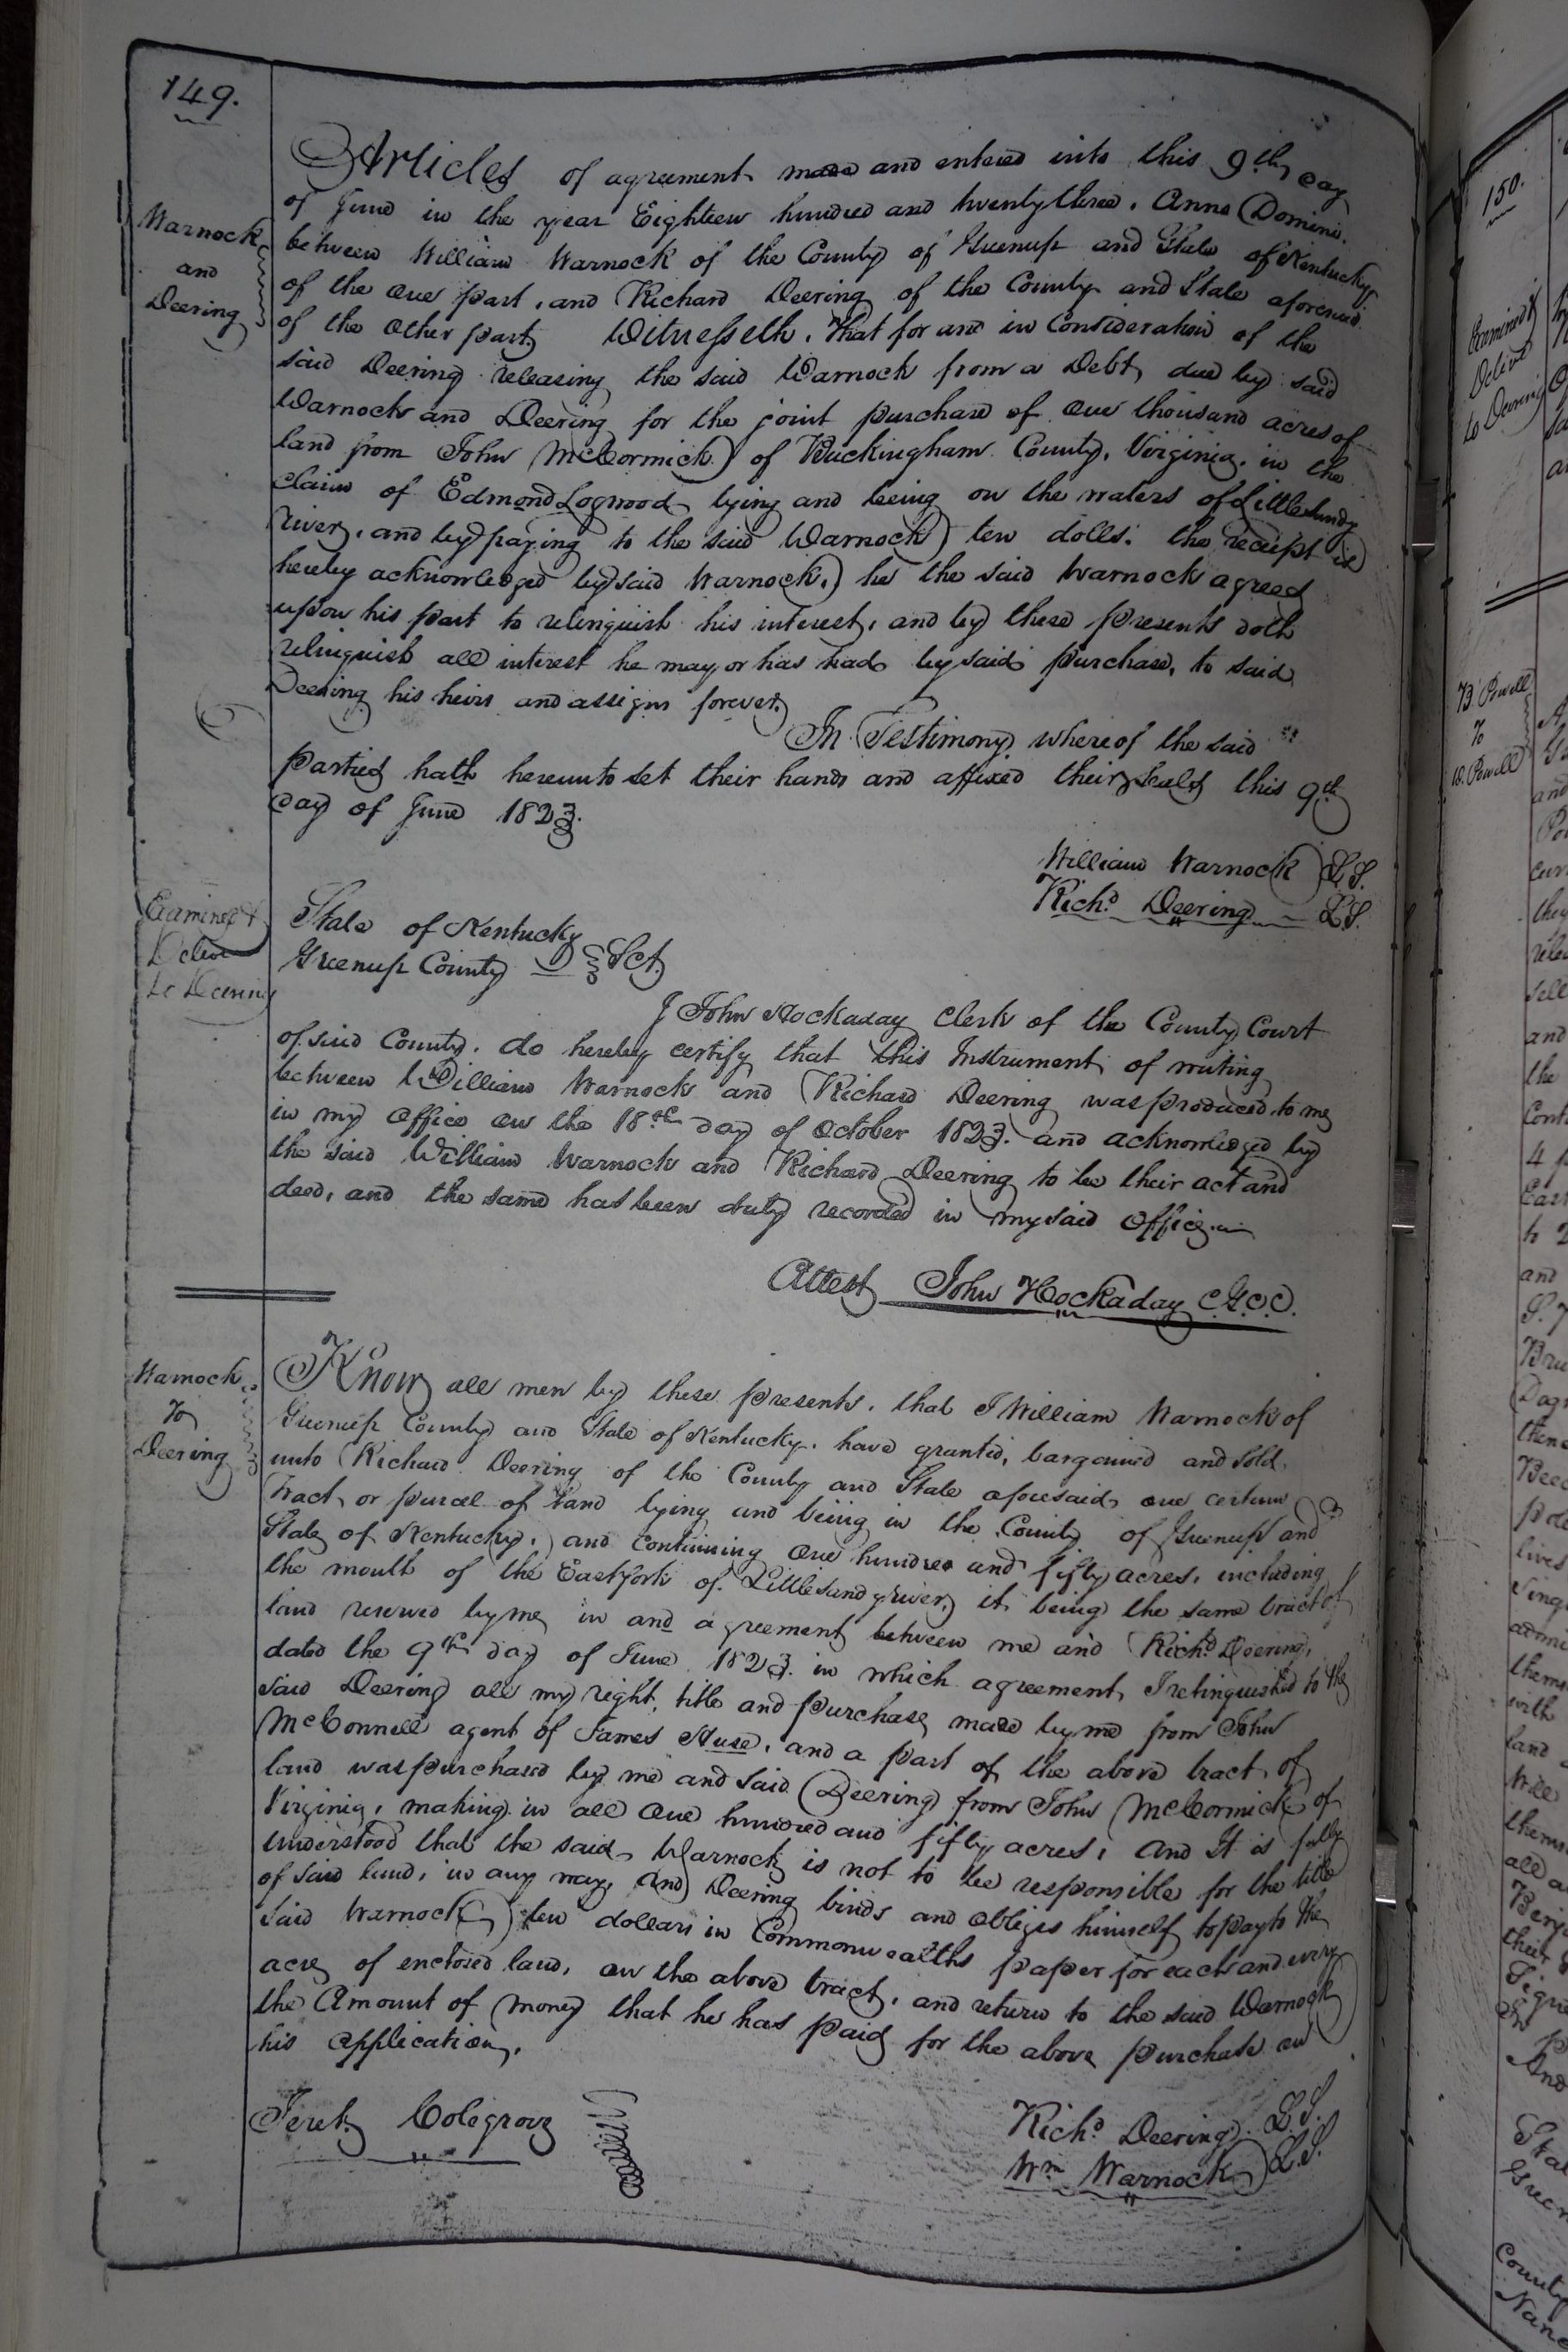 149.
Warnock
and
Deering
Articles of agreement made and entered into this 9th day
of June in the year Eighteen hundred and twenty three. Anno Domini.
between William Warnock of the County of Greenup and State of Kentucky
of the one part, and Richard Deering of the County and State aforesaid
of the other party Witnesseth. That for and in Consideration of the
said Deering releasing the said Warnock from a Debt, due by said
Warnock and Deering for the joint purchase of one thousand acres of
land from John McCormick of Buckingham County, Virginia, in the
claim of Edmond Logwood lying and being on the waters of Little Sandy
river, and by paying to the said Warnock ten dolls: the receipt is
hereby acknowledged by said Warnock, he the said Warnock agrees
upon his part to relinquish his interest, and by these presents doth
relinquish all interest he may or has had by said purchase, to said
Deering his heirs and assigns forever.
In Testimony whereof the said
parties hath hereunto set their hands and affixed their seals this 9th
day of June 1823.
William Warnock L.S.
Richd Deering L.S.
Examined &
Delivd
to Deering
State of Kentucky
Greenup County Sct.
I John Hockaday Clerk of the County Court
of said County, do hereby certify that this Instrument of writing
between William Warnock and Richard Deering was produced to me
in my office on the 18th day of October 1823. and acknowledged by
the said William Warnock and Richard Deering to be their act and
deed, and the same has been duly recorded in my said office.
Attest John Hockaday C.G.C.C.
Warnock
To
Deering
Know all men by these presents, that I William Warnock of
Greenup County and State of Kentucky, have granted, bargained and sold
unto Richard Deering of the County and State aforesaid, one certain
Tract, or parcel of land lying and being in the County of Greenup and
State of Kentucky, and containing one hundred and fifty acres, including
the mouth of the East fork of Little Sandy river, it being the same tract of
land reserved by me in and agreement between me and Richd Deering,
dated the 9th day of June 1823. in which agreement, I relinquished to the
said Deering all my right, title and purchase made by me from John
McConnell agent of James Huse, and a part of the above tract of
land was purchased by me and said Deering from John McCormick of
Virginia, making in all one hundred and fifty acres, and It is fully
understood that the said Warnock is not to be responsible for the title
of said land, in any way, and Deering binds and obliges himself to pay to the
said Warnock ten dollars in Commonwealths paper for each and every
acre of enclosed land, on the above tract, and return to the said Warnock
the Amount of money that he has paid for the above purchase on
his application.
Colegrove
Richd Deering L.S.
Wm Warnock L.S.
150.
Examined &
Delivd
to Deering
B Powell
To
W. Powell
and
they
sell
and
the
and
with
land
all
their
County